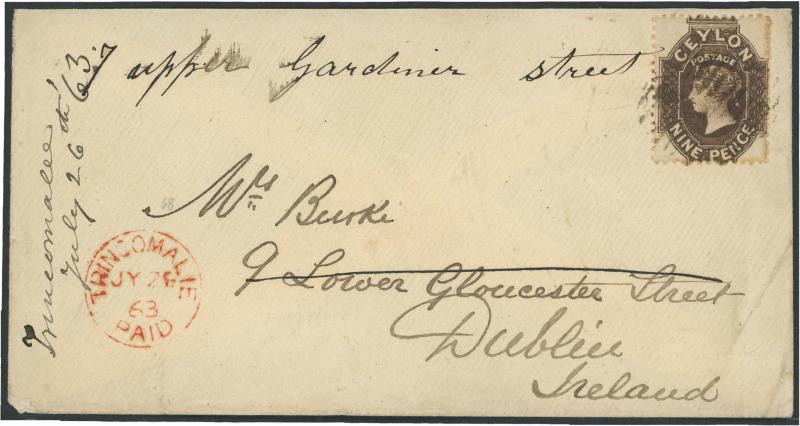 7 upper Gardiner street
CEYLON
POSTAGE
NINE PENCE
Trincomalee
July 26th 63.
Mrs Burke
9 Lower Gloucester Street
Dublin
Ireland
TRINCOMALIE
JY 28
63
PAID
68